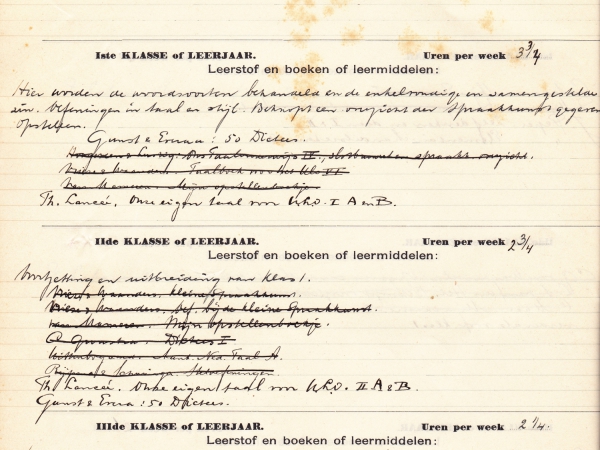 Iste KLASSE of LEERJAAR. Uren per week 3 3/4
Leerstof en boeken of leermiddelen:
Hier worden de woordsoorten behandeld en de enkelvoudige en samengestelde
zin. Oefeningen in taal en stijl. Beknopt een overzicht der Spraakkunst gegeven
Opstellen.
Gunst & Ercea: 50 Dictees.
IV, spraakk. overzicht.
Taalboek voor het
Van Mijn opstellenboekje
Th. Lancée. Onze eigen taal voor U.L.O. I A en B.
IIde KLASSE of LEERJAAR. Uren per week 2 3/4
Leerstof en boeken of leermiddelen:
Voortzetting en uitbreiding van klas I.
kleine Spraakkunst
Oef. bij de kleine Spraakkunst.
Mijn opstellenboekje.
Dictees I
Ned. Taal A.

Th. Lancée. Onze eigen taal voor U.L.O. II A & B.
Gunst & Ercea: 50 Dictees.
IIIde KLASSE of LEERJAAR. Uren per week 2 1/4
Leerstof en boeken of leermiddelen: